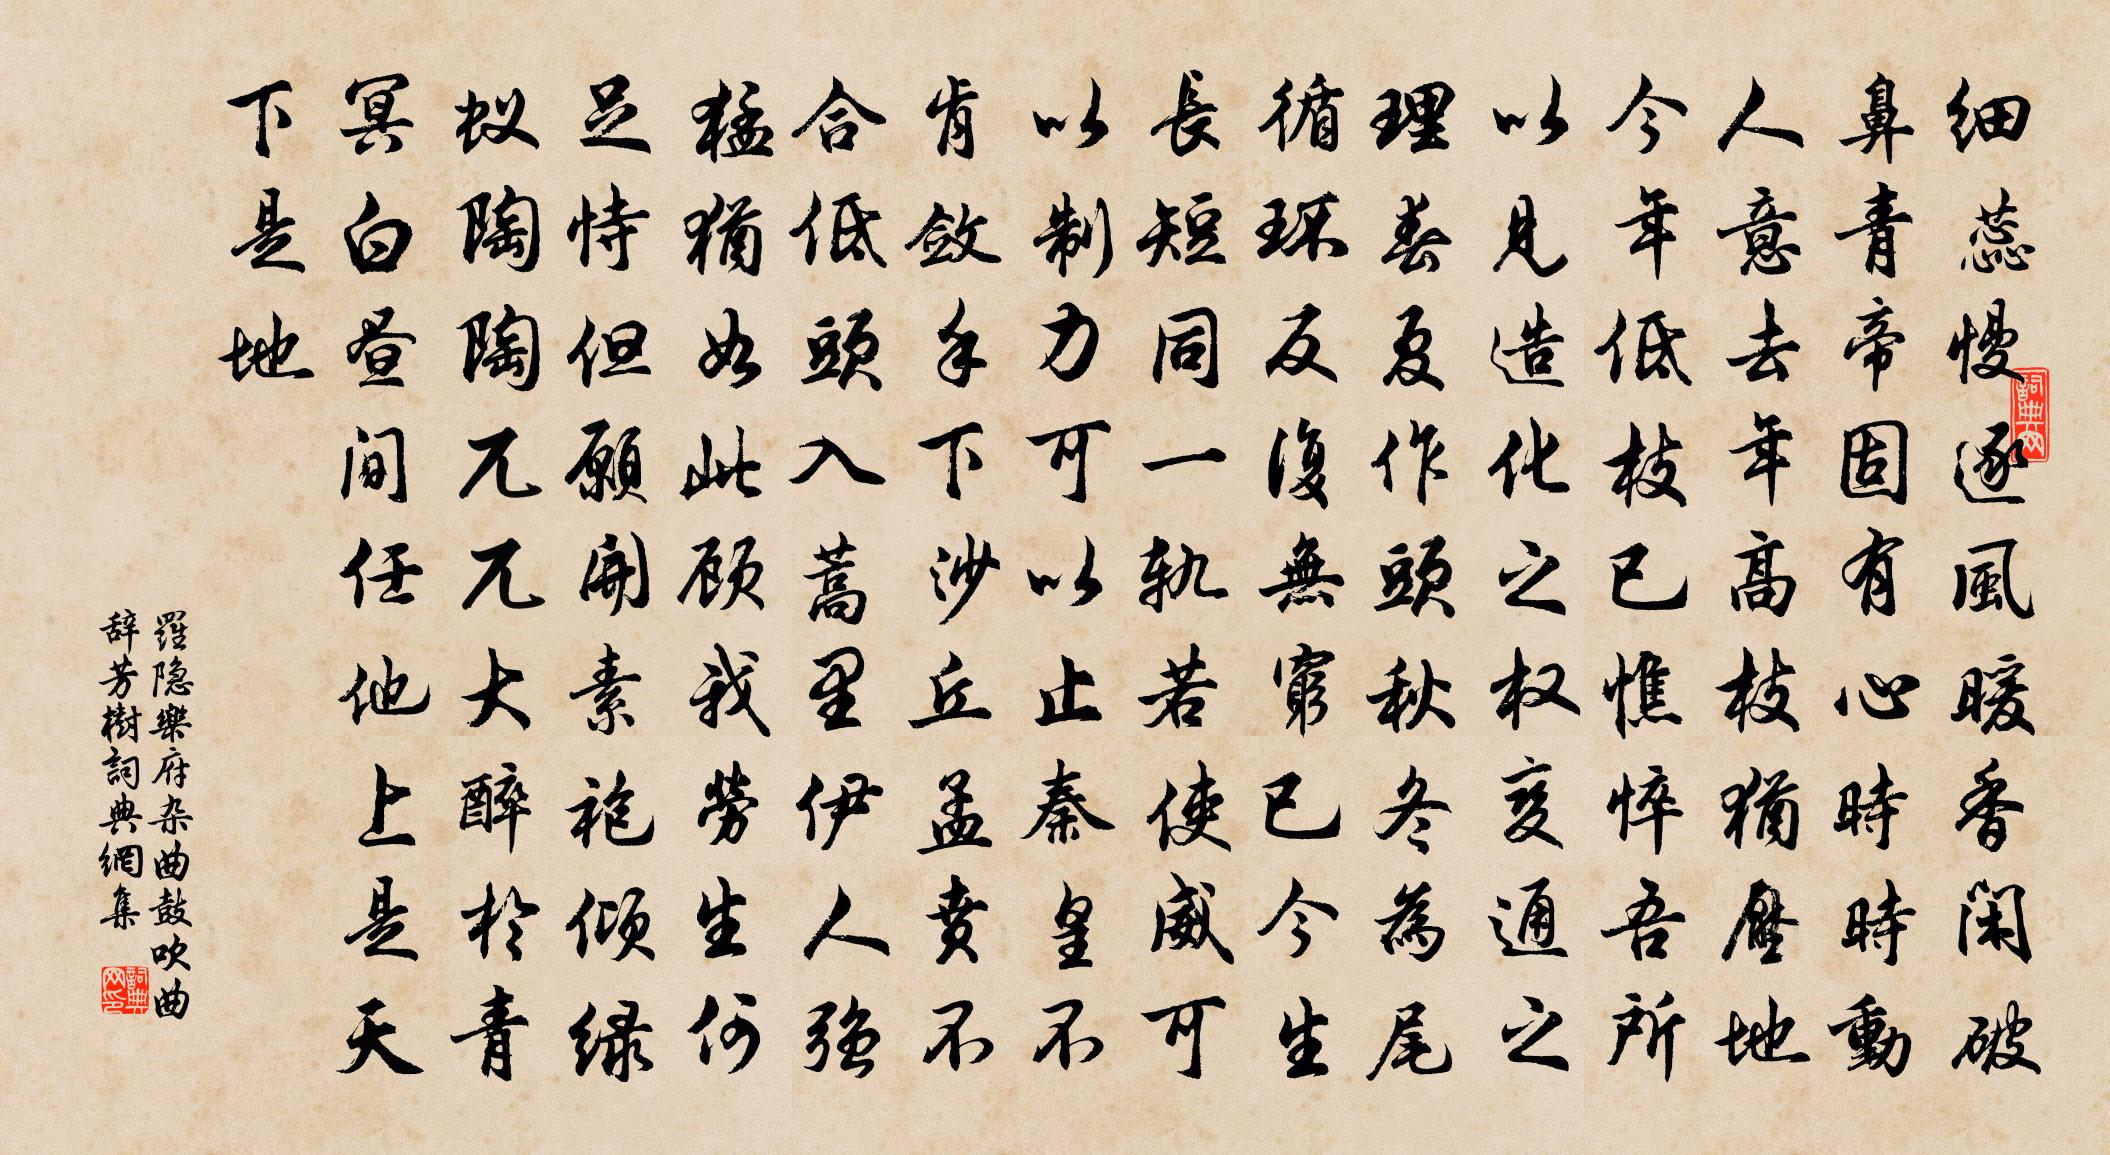 细蕊慢逐風暖香閑破
鼻青帝固有心時時動
人意去年高枝猶壓地
今年低枝已憔悴吾所
以見造化之权变通之
理春夏作頭秋冬為尾
循环反復無窮已今生
長短同一轨若使威可
以制力可以止秦皇不
肯斂手下沙丘孟贲不
合低頭入蒿里伊人强
猛猶如此顾我劳生何
足恃但願開素袍傾绿
蚁陶陶兀兀大醉於青
冥白昼间任他上是天
下是地
羅隐樂府杂曲鼓吹曲
辞芳樹詞典網集
詞典网
詞典网印